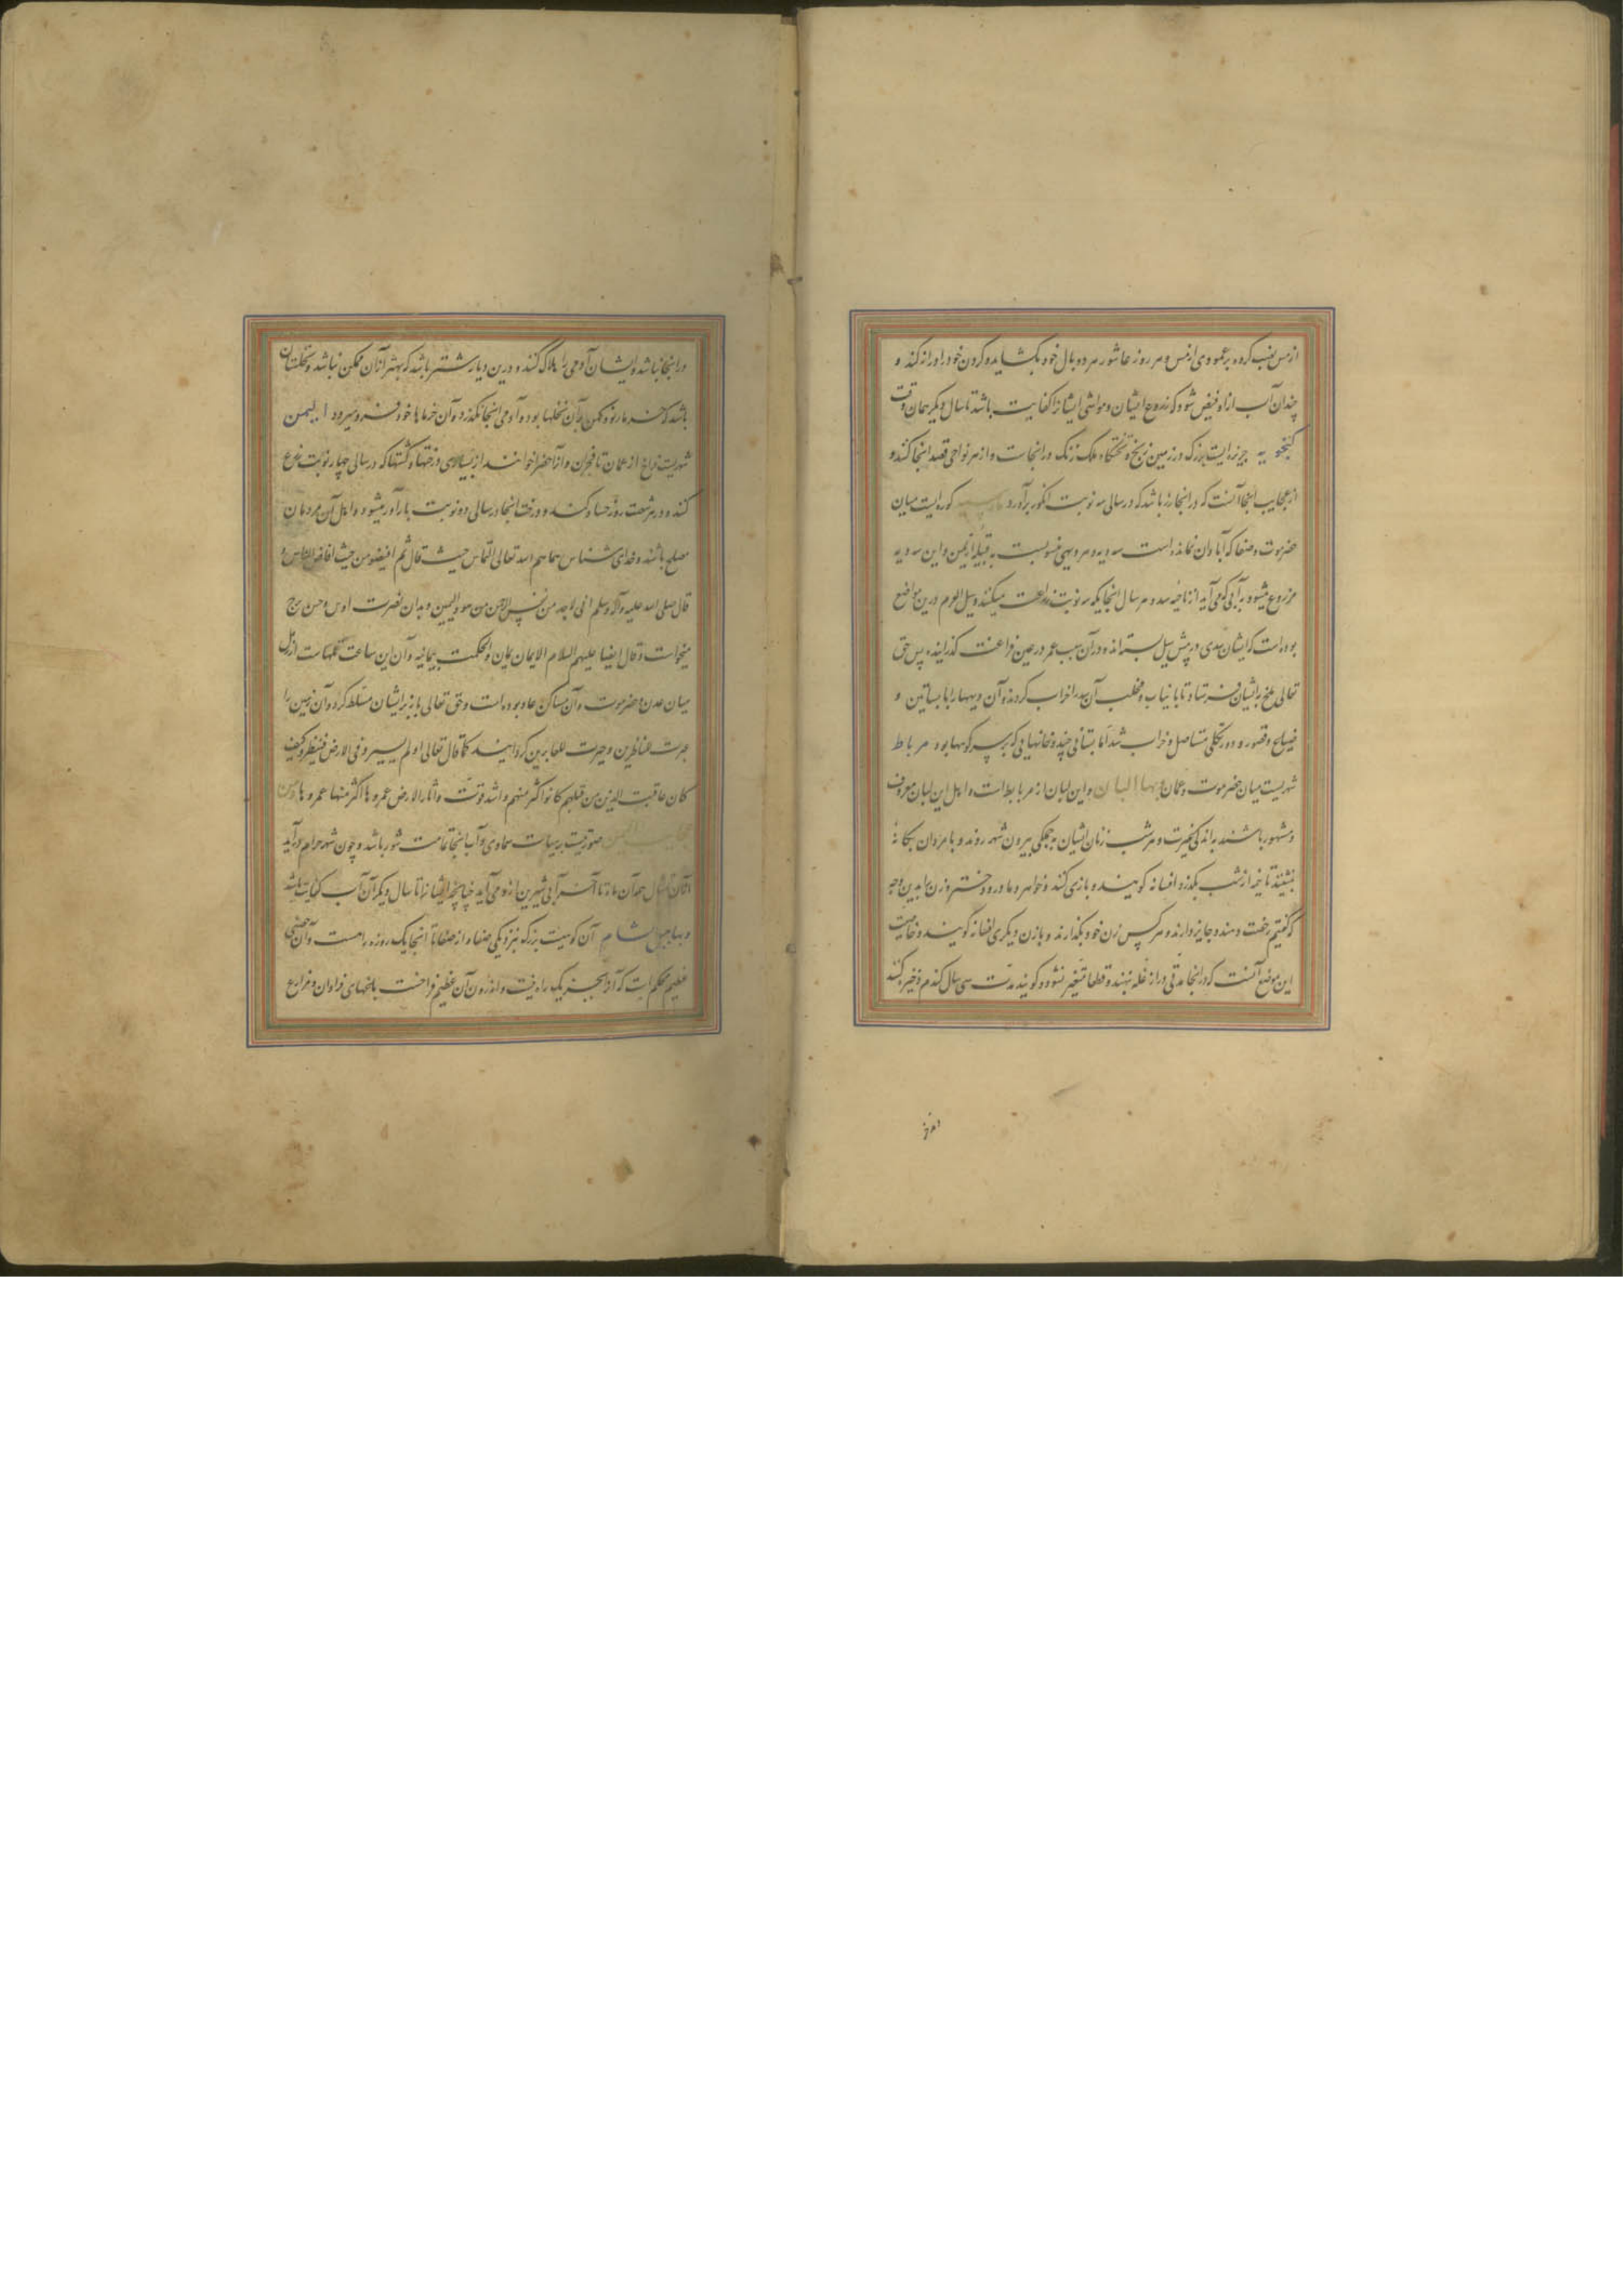 از مس نصب کرده بر عمودی از مس و هر روز عاشور هر دو بال خود بکشاید و کردن خود را دراز کند و
چندان آب ازو فیض شود که زروع ایشان و مواشی ایشانرا کفایت باشد تا سال دیکر همان وقت
کنجویه جزیره ایست بزرک در زمین زنج و تختکاه ملک زنک در انجاست و از هر نواحی قصد انجا کنند و
از عجایب انجا آنست که در انجا رز باشد که در سالی سه نوبت انکور برآورد کوره ایست میان
حضرموت و صنعا که آبادان نمانده است سه دیه و هر دیهی منسوبست به قبیلۀ از یمن و این سه دیه
مزروع میشود به آبی که می آید از ناحیۀ سد و هر سال انجایکه سه نوبت زراعت میکنند و سیل العرم درین مواضع
بوده است که ایشان سدی در پیش سیل بسته اند و در آن سبب عمر در عین فراغت کذرانیده پس حق
تعالی ملخ بر ایشان فرستاد تا با نیاب و مخلب آن سد را خراب کردند و آن دیهها را با بساتین و
ضیاع و قصور و دور بکلی مستاصل و خراب شد اما بستانی چند و خانهایی که بر سر کوهها بود مرباط
شهریست میان حضرموت و عمان و بها اللبان و این لبان از مرباط است و اهل این لبان معروف
و مشهور باشند به اندکی غیرت و هر شب زنان ایشان به جملکی بیرون شهر روند و با مردان بیکانۀ
بنشینند تا نیمه از شب بکذرد افسانه کویند و بازی کنند و خواهر و مادر و دختر و زن را بدین وجه
که کفتیم رخصت دهند و جایز دارند و هر کس زن خود بکذارند و با زن دیکری افسانه کویند و خاصیت
این موضع آنست که در انجا مدتی دراز غله نهند و قطعا متغیر نشود و کویند مدت سی سال کندم ذخیره کنند
در انجا نباشد و ایشان آدمی را هلاک کنند و درین دیار شتر باشد که بهتر از آن ممکن نباشد و نخلستان
باشد که خرما ر نو و کهن در آن نخلها بود و آدمی انجا نکذرد و آن خرماها خود فرو میرود الیمن
شهریست فراغ از عمان تا نجران و آنرا خضرا خوانند از بسیاری درختها و کشتها که در سالی چهار نوبت زرع
کنند و در شصت روز حصاد کنند و درخت انجا در سالی دو نوبت بارآور میشود و اهل آن مردمان
مصلح باشند و خدای شناس سماهم الله تعالی الناس حیث قال ثم افیضوا من حیث افاض الناس و
قال صلی الله علیه و آله و سلم انی لاجد من نفس الرحمن من صوب الیمین و بدان نصرت اوس و خزرج
میخواست و قال ایضا علیهم السلام الایمان یمان و الحکمت یمانیه و آن این ساعت تلهاست از رمل
میان عدن و حضرموت و آن مساکن عاد بوده است و حق تعالی باد بر ایشان مسلط کرد و آن زمین را
عبرت للناظرین و حیرت للعابرین کردانید کما قال تعالی اولم یسیروا فی الارض فینظروا کیف
کان عاقبت الذین من قبلهم کانوا اکثر منهم و اشد قوت و اثاروا الارض عمروها اکثر منها عمروها و من
عجایب الیمن صورتیست بر هیات سماوی و آب انجا تمامت شور باشد و چون شهر حرام درآید
و بها جبل الشام آن کوهیست بزرک بنزدیکی صنعاء از صنعا تا انجا یک روزه راهست و آن حصنی
عظیم محکم است که آنرا بجز یک راه نیست و اندرون آن عظیم فراخست باغهای فراوان و مزارع